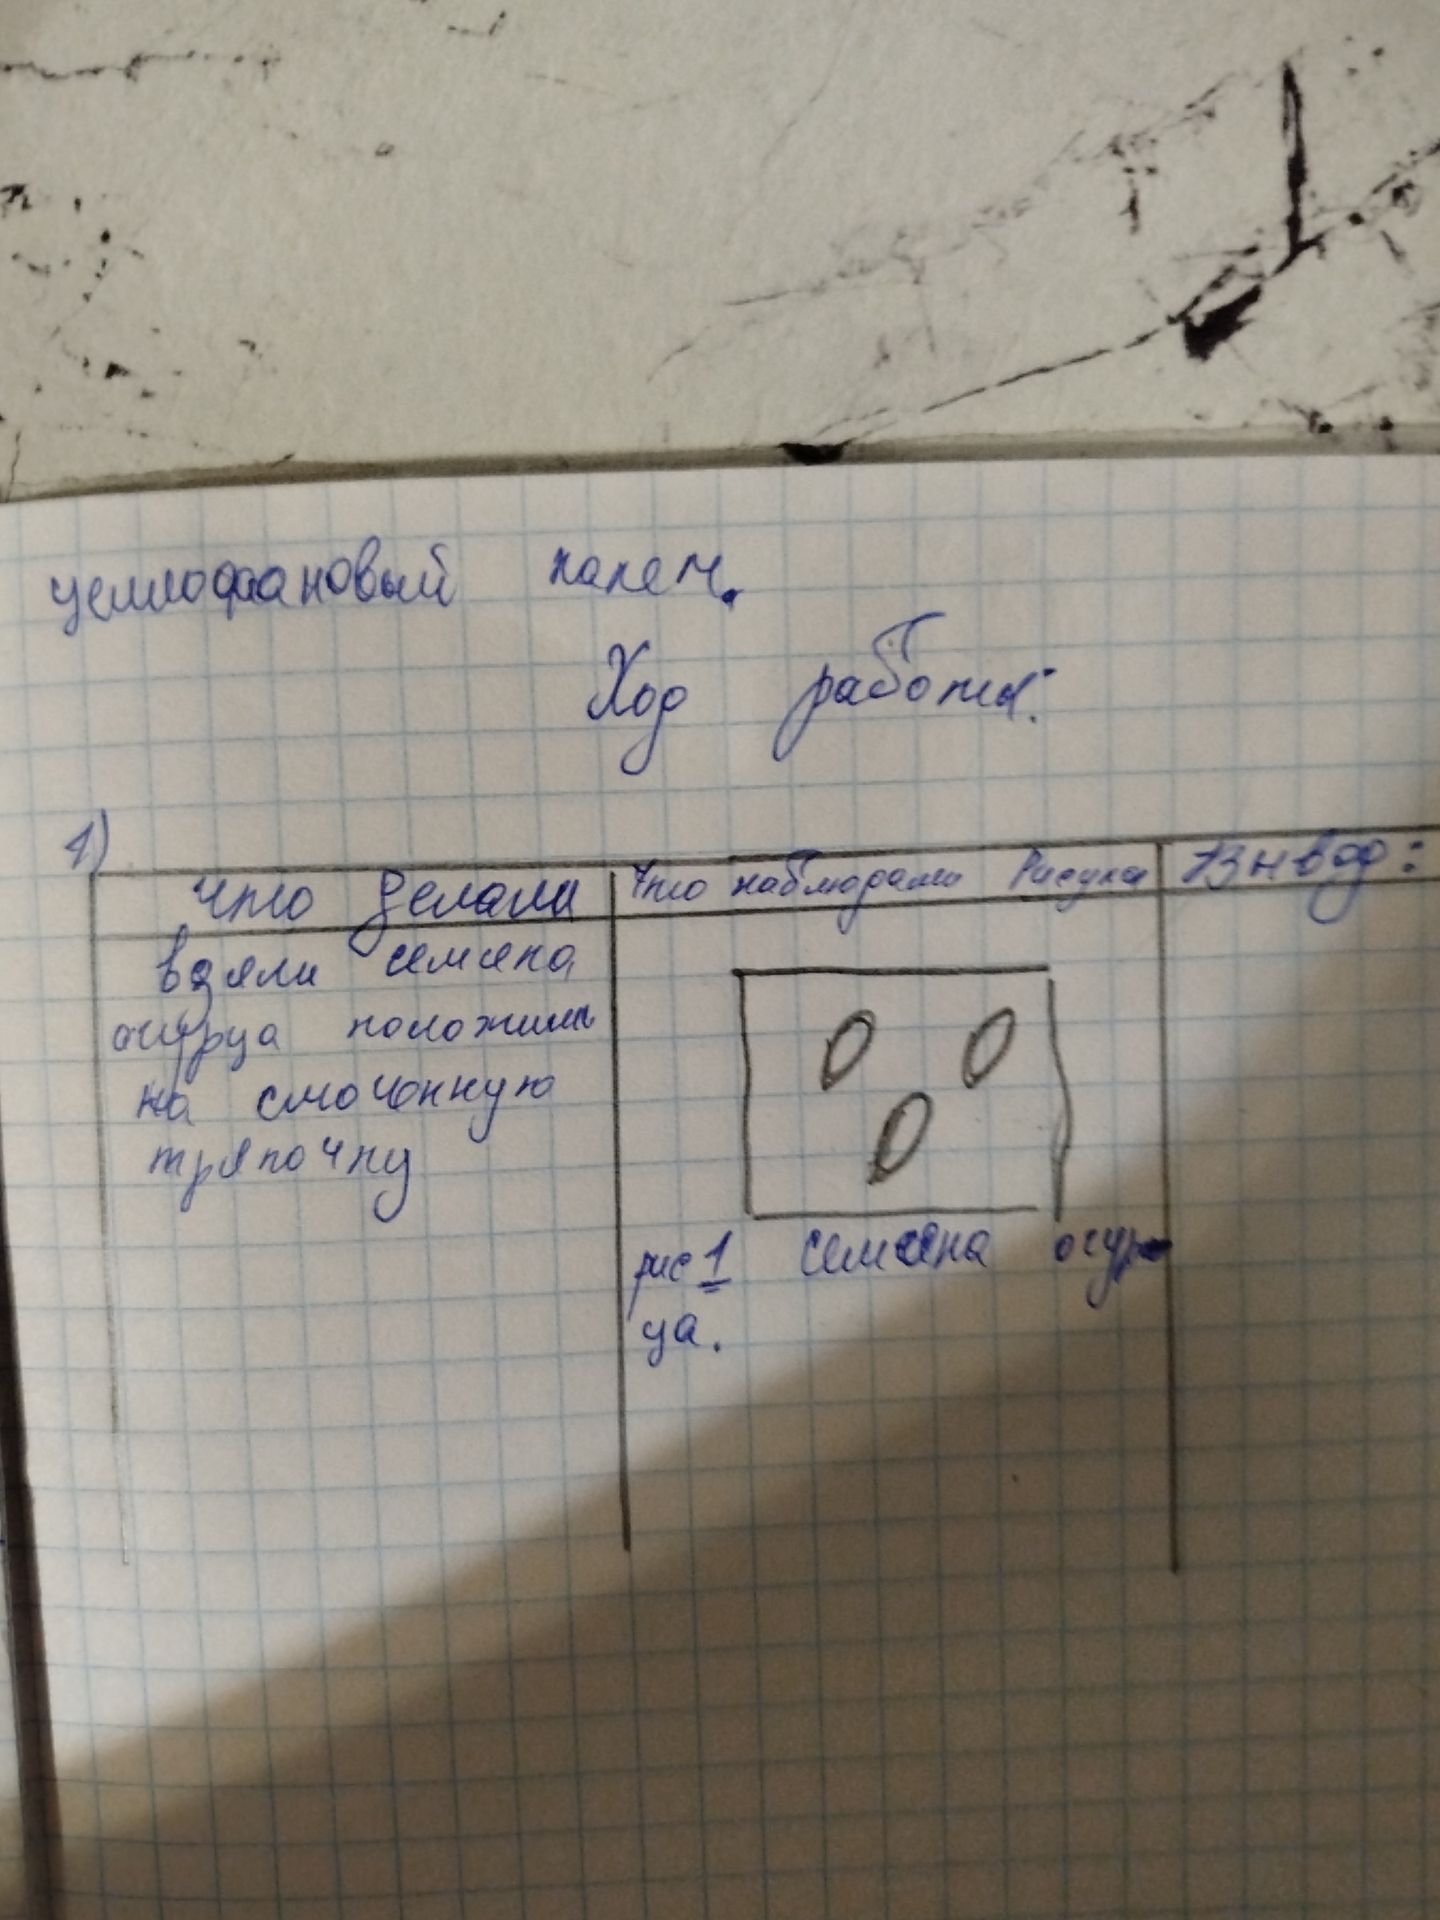 целлофановый пакет.
Ход работы:
1)
Что делали
Что наблюдали Рисунки
Вывод:
взяли семена
огурца положили
на смоченную
тряпочку
рис 1 семена огур
ца.